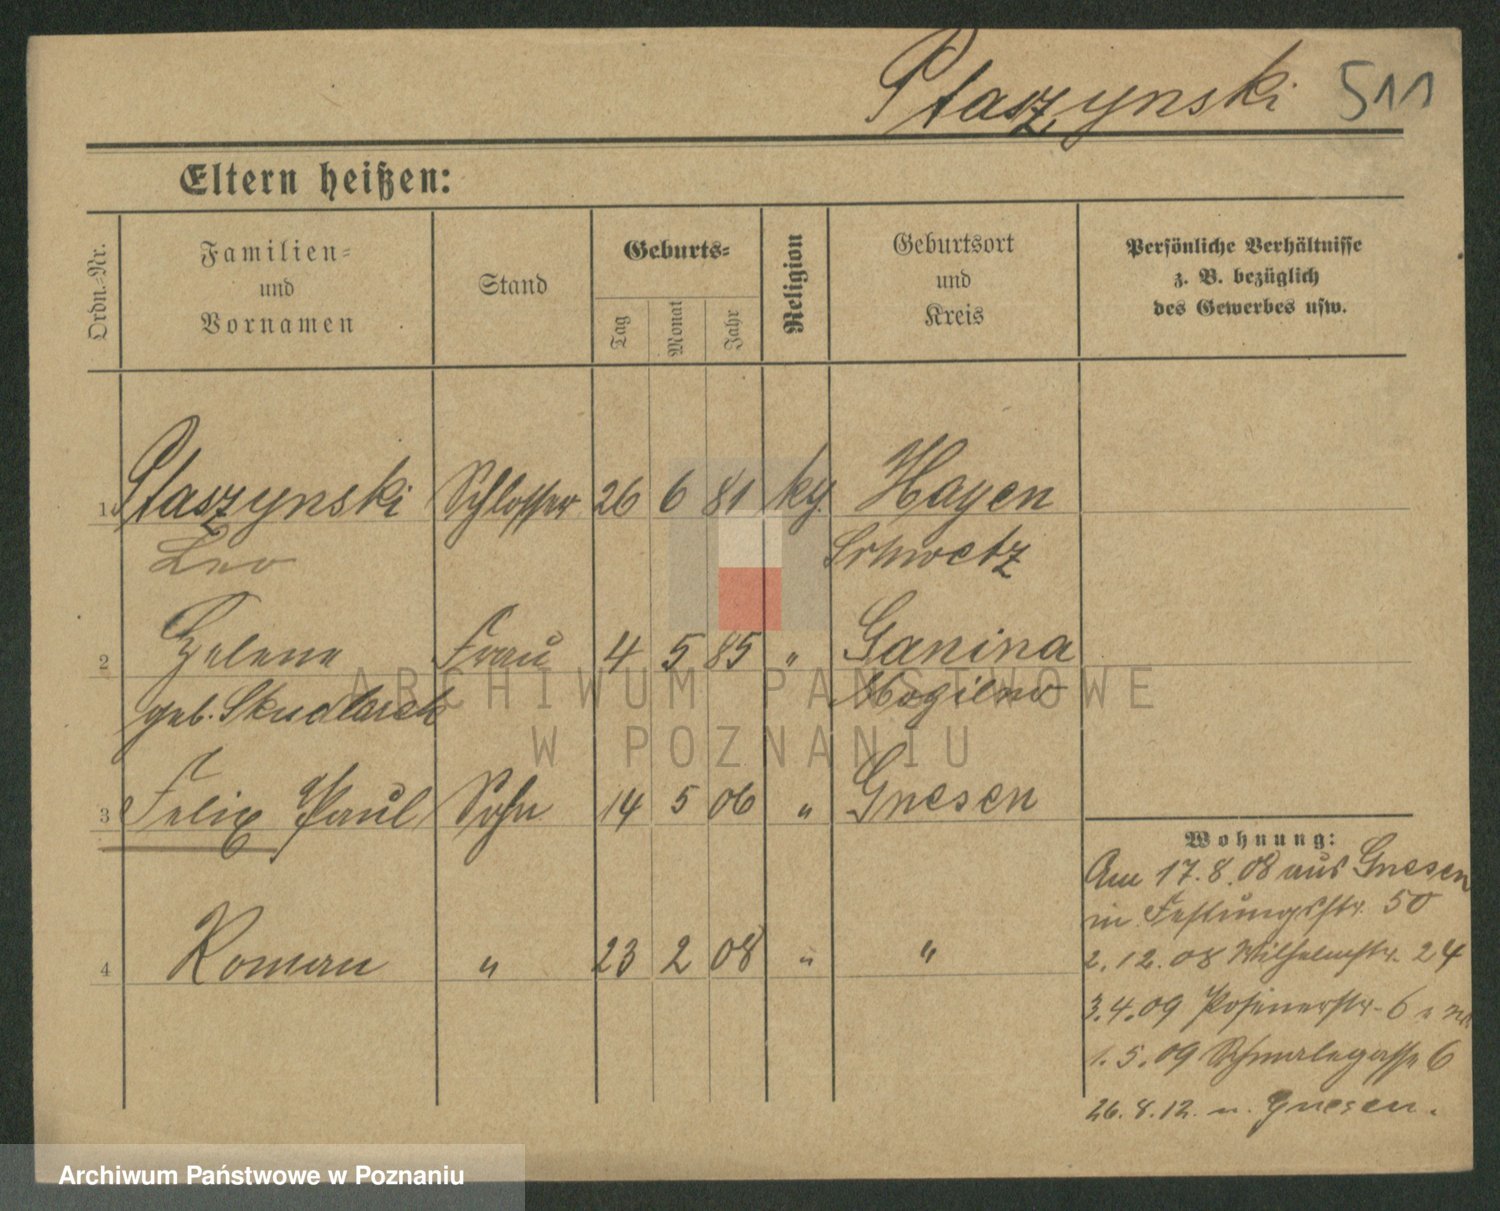 Staszynski 511
Eltern heißen:
Ordn.-Nr.
Familien-
und
Vornamen
Stand
Geburts-
Tag
Monat
Jahr
Religion
Geburtsort
und
Kreis
Persönliche Verhältnisse
z. B. bezüglich
des Gewerbes usw.
1 Staszynski Schlosser 26 6 81 Hagen
Leo Schwetz
2 Helene Frau 4 5 85 " Ganina
geb. Skudlarek Mogilno
3 Felix Paul Sohn 14 5 06 " Gnesen
4 Roman " 23 2 08 " "
Wohnung:
Am 17.8.08 aus Gnesen
in Festungsstr. 50
2.12.08 Wilhelmstr. 24
3.4.09 Posenerstr. 6
1.5.09 Schmalegasse 6
26.8.12. n. Gnesen.
ARCHIWUM PAŃSTWOWE
W POZNANIU
Archiwum Państwowe w Poznaniu